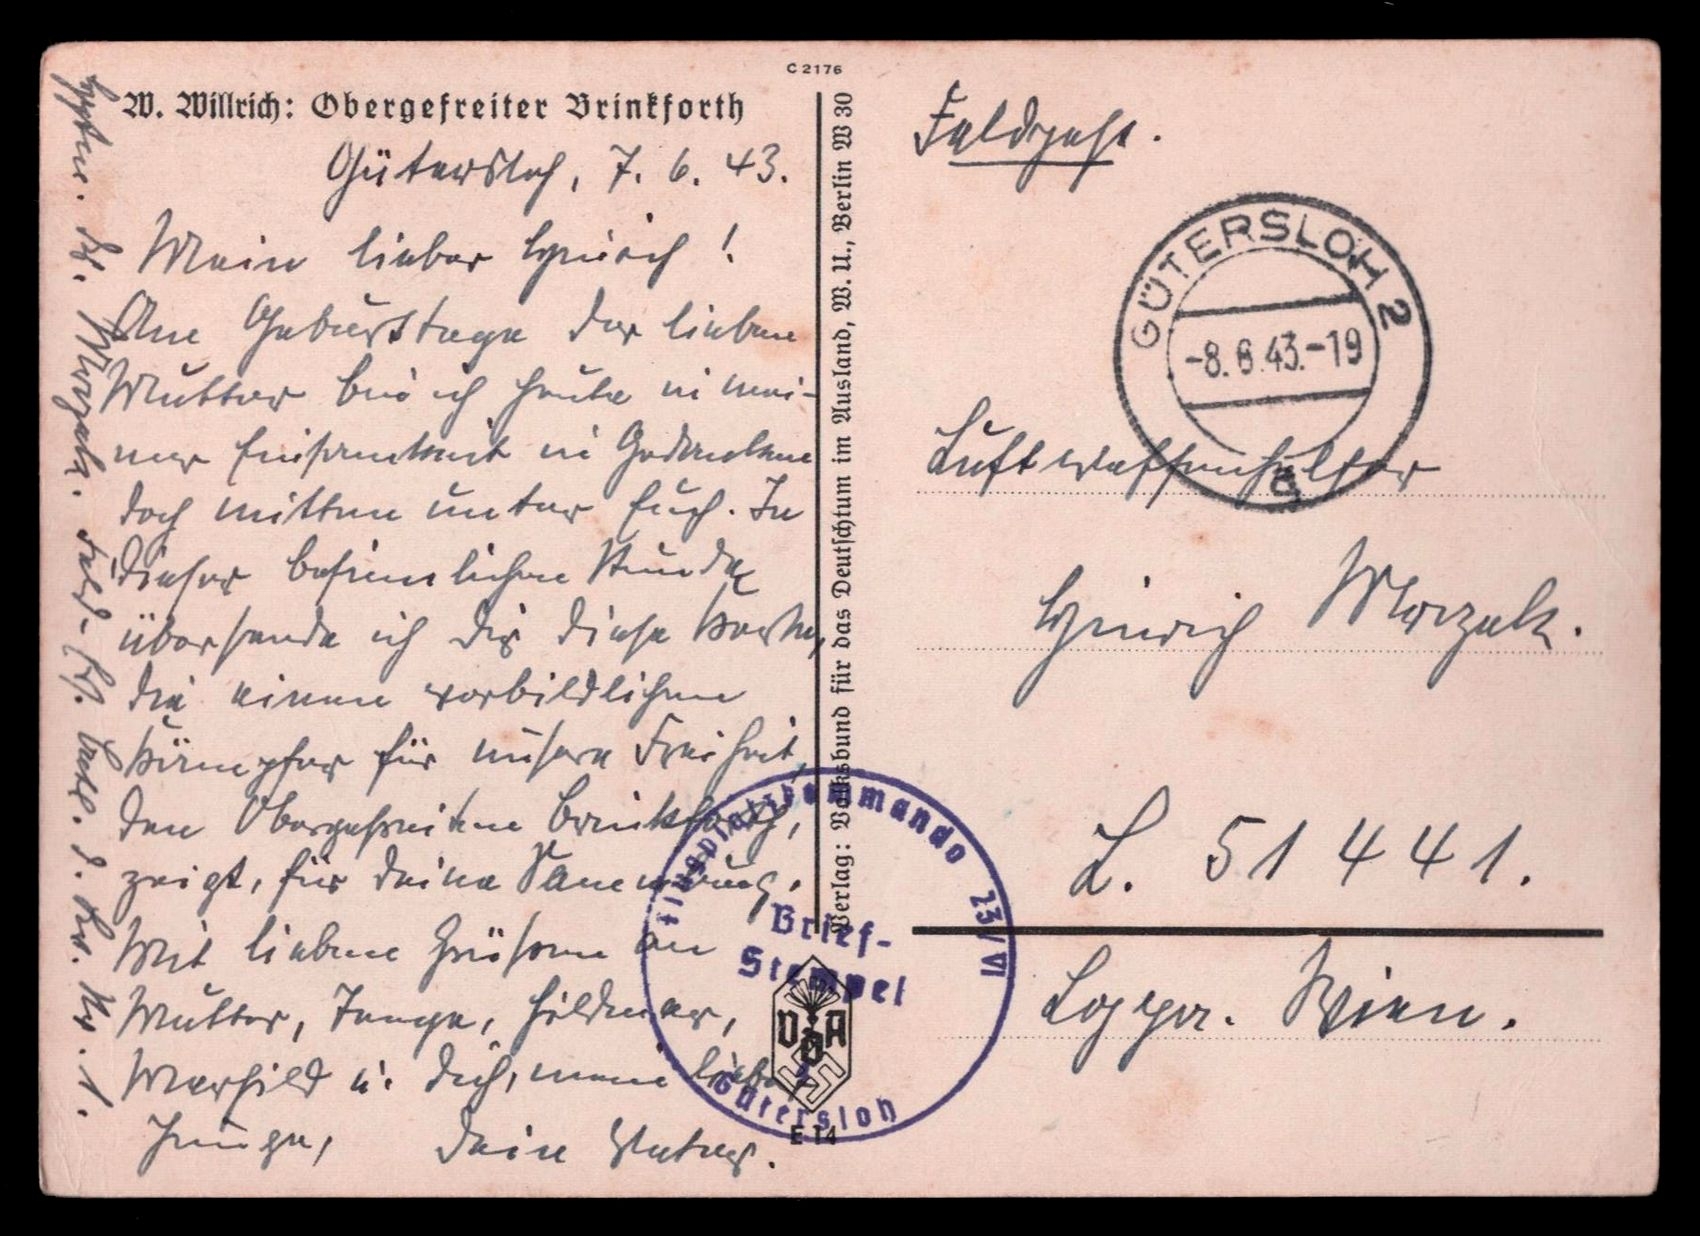 C 2176
W. Willrich: Obergefreiter Brinkforth
Gütersloh, 7. 6. 43.
Mein lieber Hinrich!
Am Geburtstage der lieben
Mutter bin ich heute in mei-
ner Einsamkeit in Gedanken
doch mitten unter Euch. In
dieser besinnlichen Stunde
übersende ich Dir diese Karte,
die einen vorbildlichen
Kämpfer für unsere Freiheit,
den Obergefreiten Brinkforth,
zeigt, für Deine Sammlung.
Mit lieben Grüßen an
Mutter, Hildmar,
Marhild u. Dich, mein lieber
Junge, Dein Vater.
Hptm. Dr.
Verlag: Volksbund für das Deutschtum im Ausland, W. U., Berlin W 30
Feldpost.
GÜTERSLOH 2
-8.6.43.-19
Luftwaffenhelfer
Hinrich
L. 51441.
Lg. Wien.
Flugplatzkommando 23/VI
Brief-
Stempel
Gütersloh
VDA
E 14